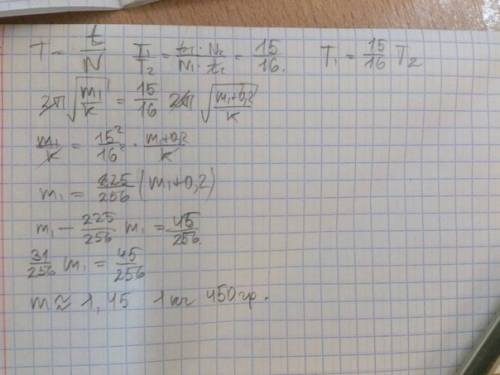 T = t/N   T₁/T₂ = t₁·N₂/N₁·t₂ = 15/16.   T₁ = 15/16 T₂
2π√(m₁/k) = 15/16 2π√((m₁+0,2)/k)
m₁/k = 15²/16² · (m₁+0,2)/k
m₁ = 225/256 (m₁+0,2)
m₁ - 225/256 m₁ = 45/256
31/256 m₁ = 45/256
m ≈ 1,45   1 кг 450 гр.